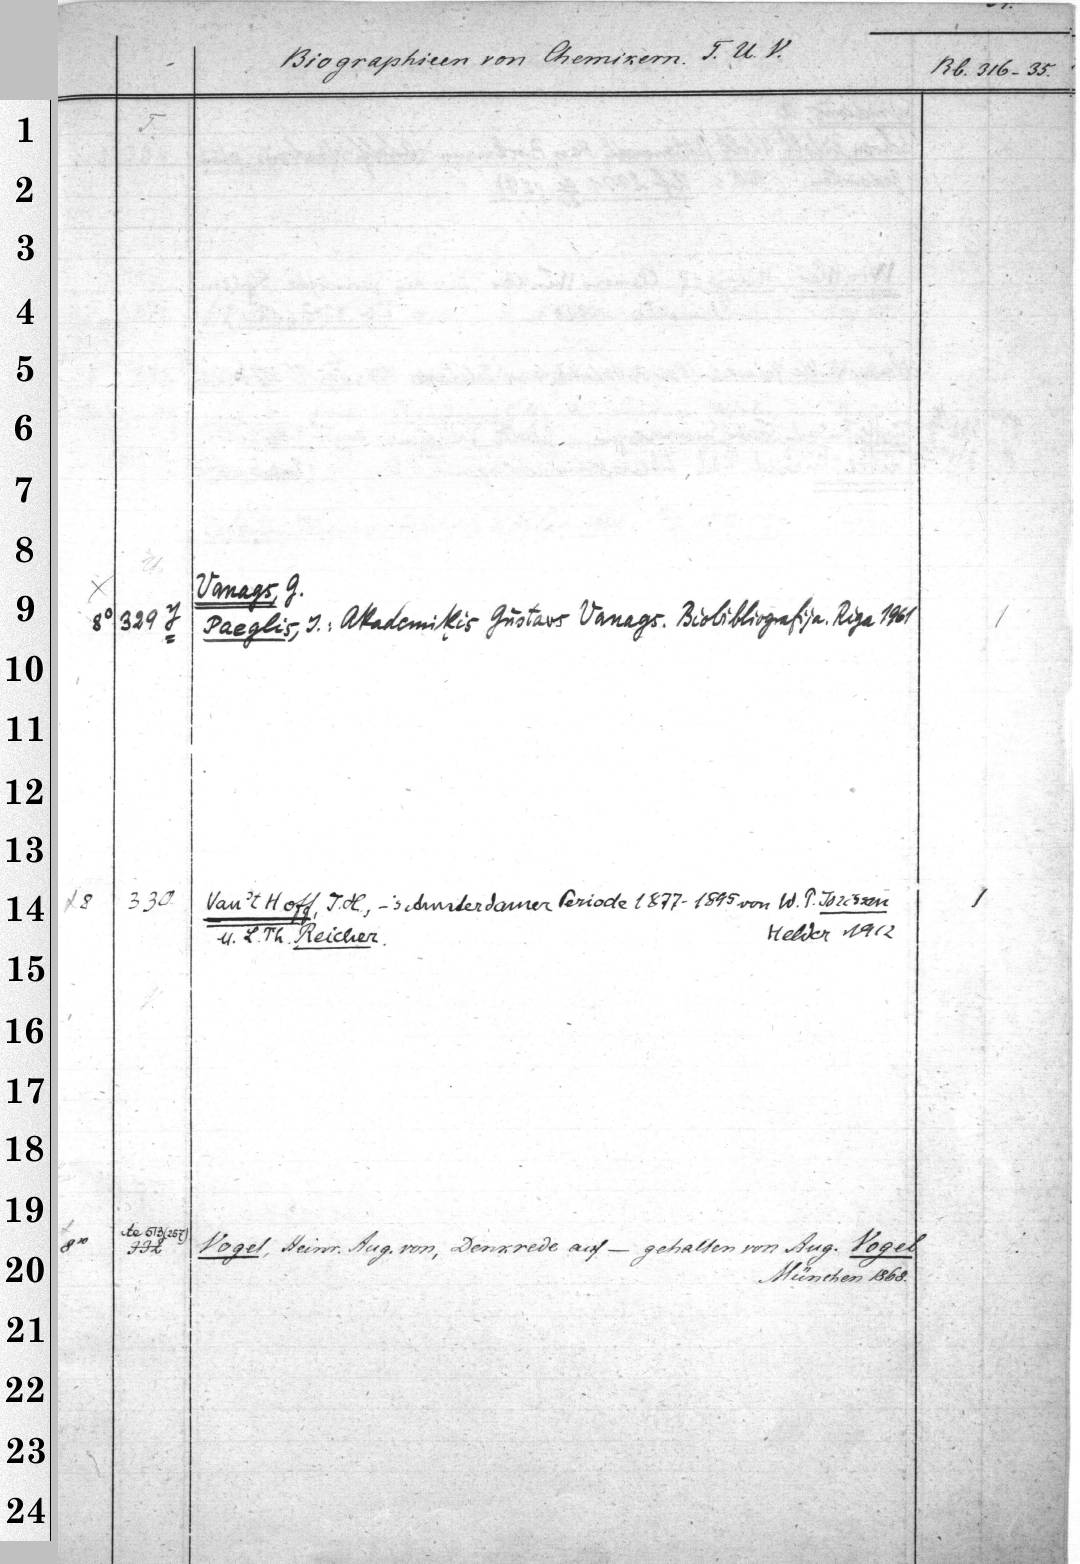 Biographieen von Chemikern. T. U. V.
Rb. 316-35.
1
T.
2
3
4
5
6
7
8
U.
Vanags, G.
9
8° 329 Paeglis, J.: Akademiķis Gustavs Vanags. Biobibliografija. Riga 1961 1
10
11
12
13
14
8 330 Van't Hoff, J. H., -'s Amsterdamer Periode 1877-1895 von W. P. Jorissen 1
u. L. Th. Reicher. Helder 1912
15
16
17
18
19
20
8° Vogel, Heinr. Aug. von, Denkrede auf — gehalten von Aug. Vogel
München 1868.
21
22
23
24